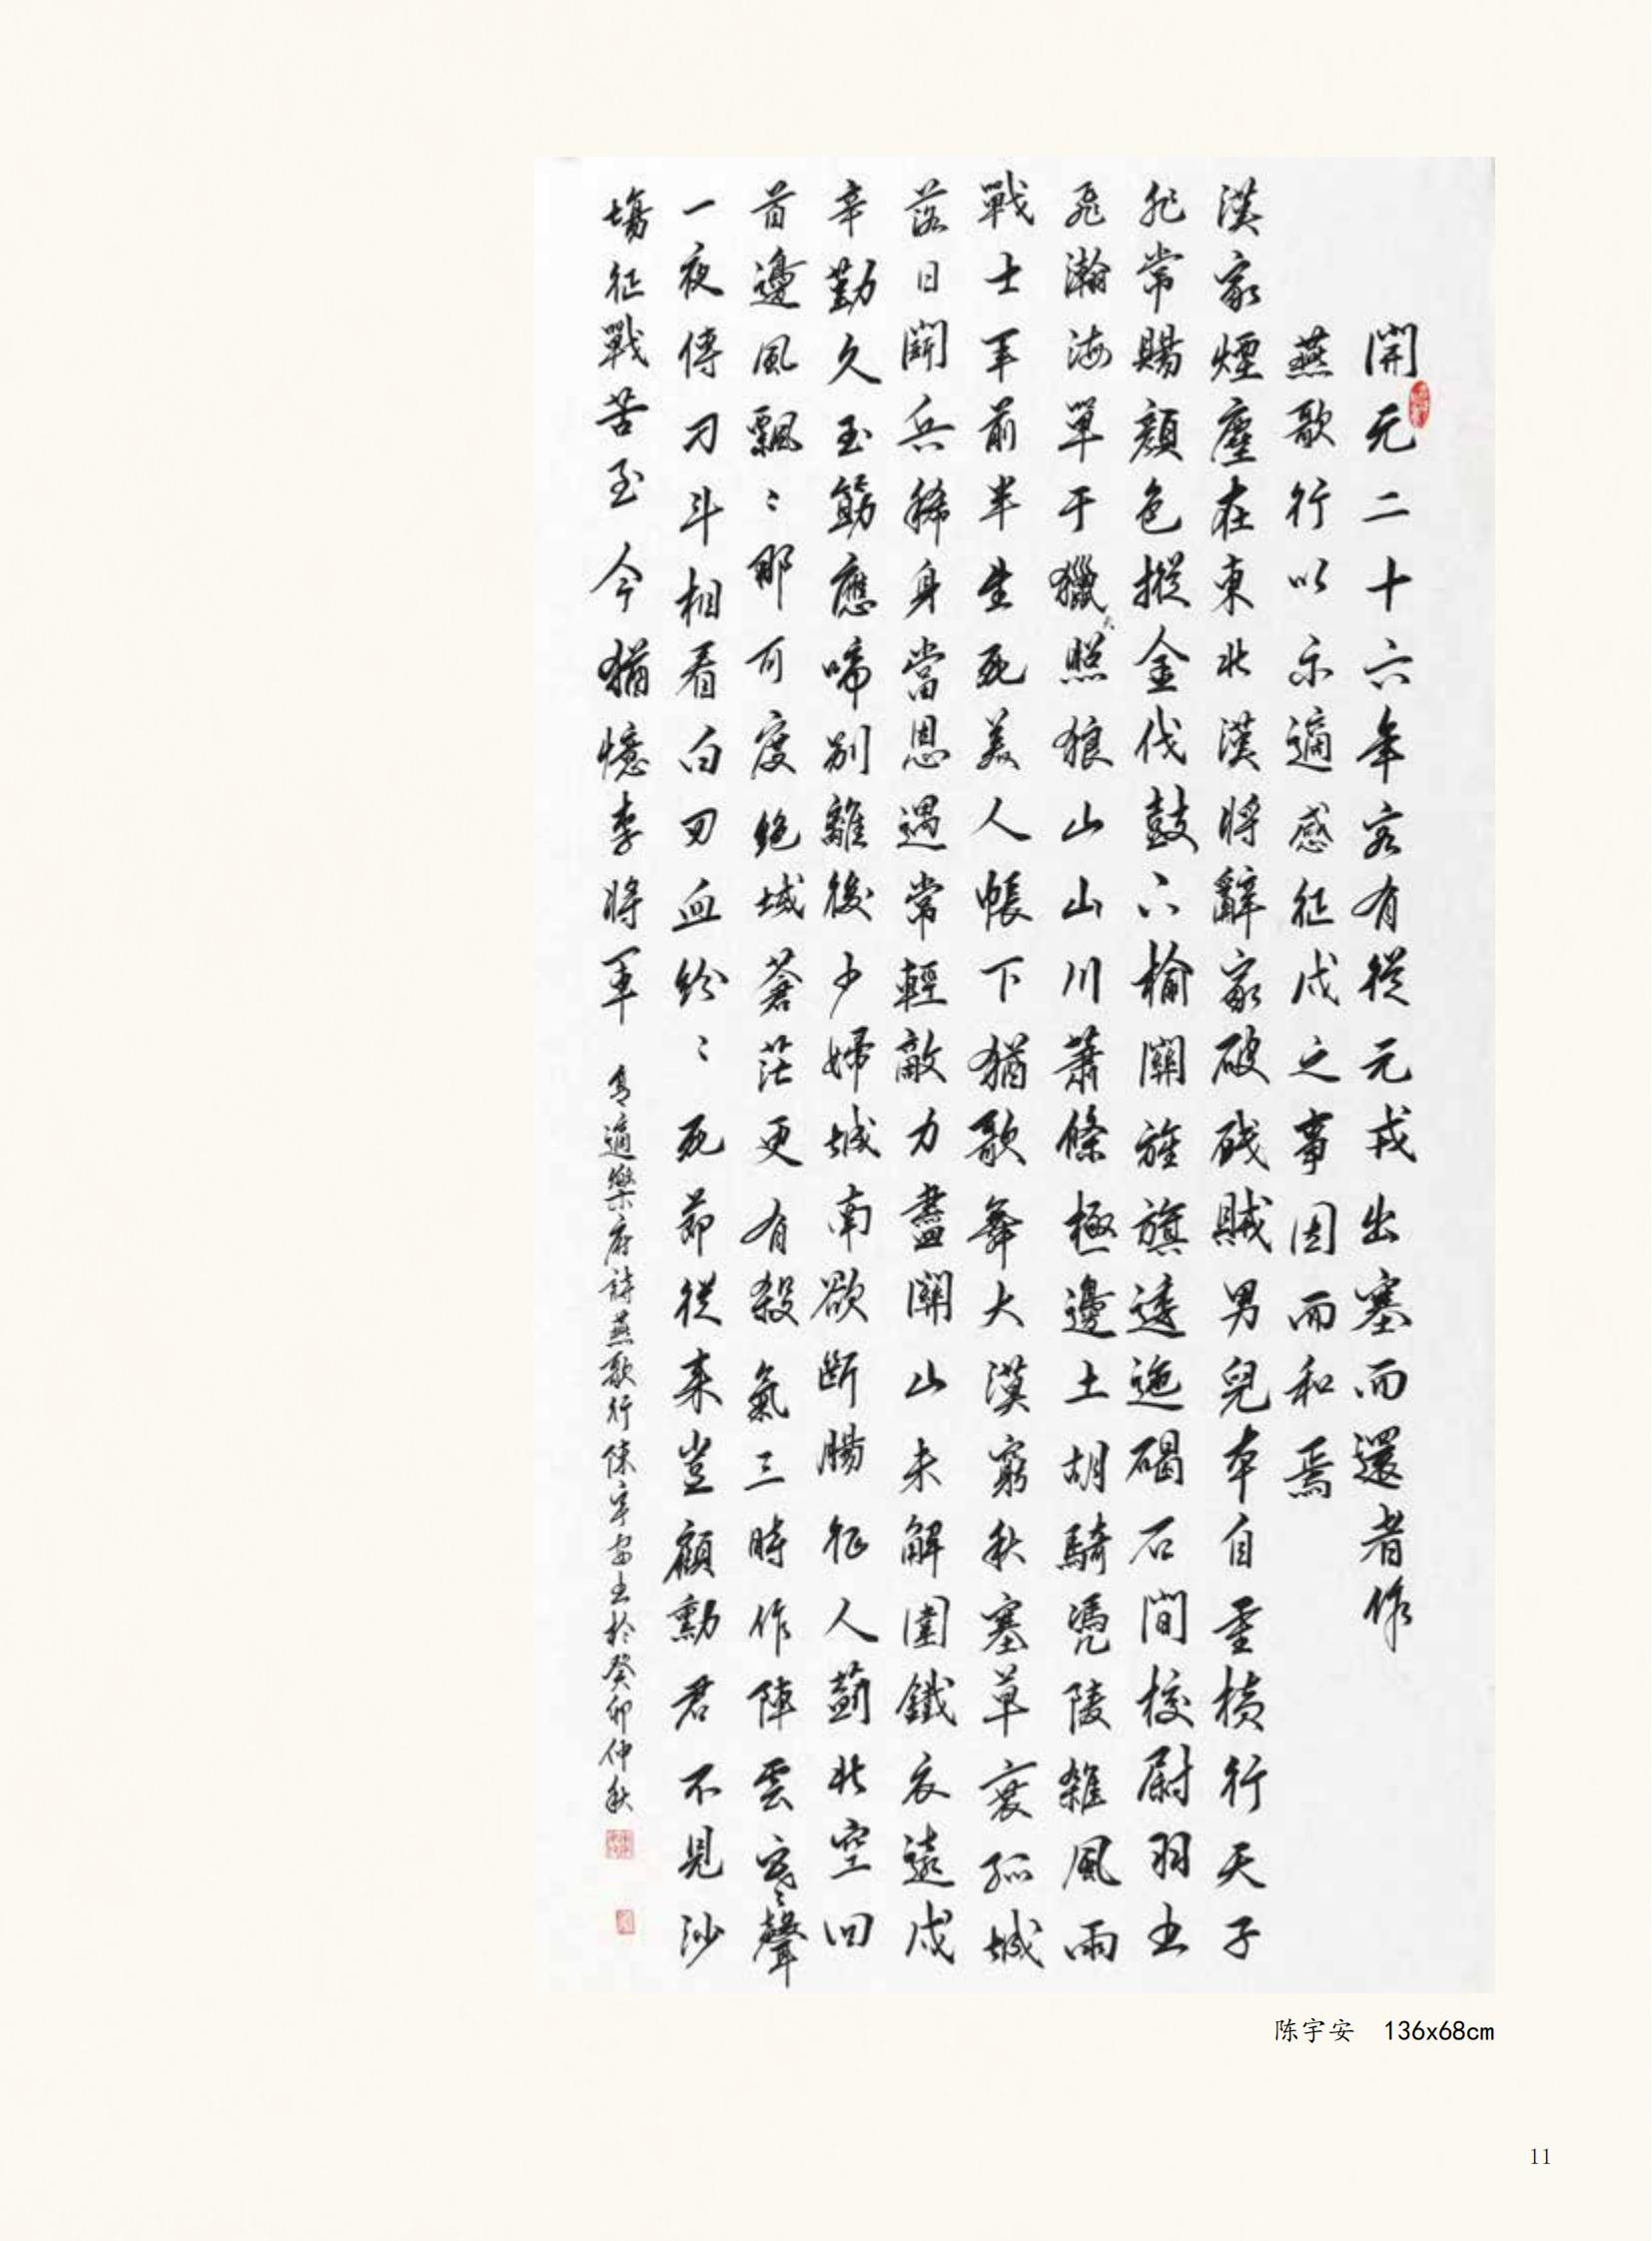 開元二十六年客有從元戎出塞而還者作
燕歌行以示適感征戍之事因而和焉
漢家煙塵在東北漢將辭家破殘賊男兒本自重橫行天子
非常賜顏色摐金伐鼓下榆關旌旗逶迤碣石間校尉羽書
飛瀚海單于獵火照狼山山川蕭條極邊土胡騎憑陵雜風雨
戰士軍前半生死美人帳下猶歌舞大漠窮秋塞草衰孤城
落日鬭兵稀身當恩遇常輕敵力盡關山未解圍鐵衣遠戍
辛勤久玉筯應啼別離後少婦城南欲斷腸征人薊北空回
首邊風飄〻那可度絕域蒼茫更有殺氣三時作陣雲寒〻聲
一夜傳刁斗相看白刃血紛〻死節從來豈顧勳君不見沙
場征戰苦至今猶憶李將軍 高適樂府詩燕歌行陳宇安書於癸卯仲秋
陈宇安 136x68cm
11